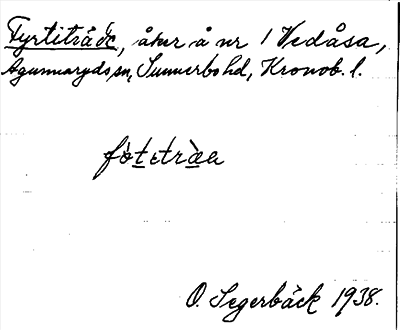 Fyrtiträde, åker å nr 1 Vedåsa,
Agunnaryds sn, Sunnerbo hd, Kronob. l.
fòtetràa
O. Segerbäck 1938.